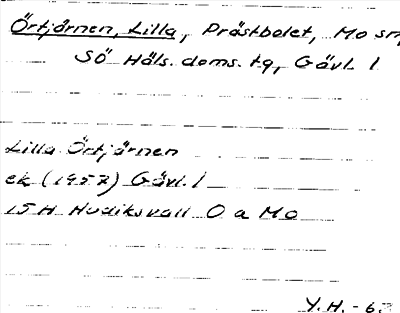 Örtjärnen, Lilla, Prästbolet, Mo sn,
Sö Häls. doms. tg, Gävl. l
Lilla Örtjärnen
ek (1957) Gävl. l
15H Hudiksvall 0 a Mo
Y.H. -63